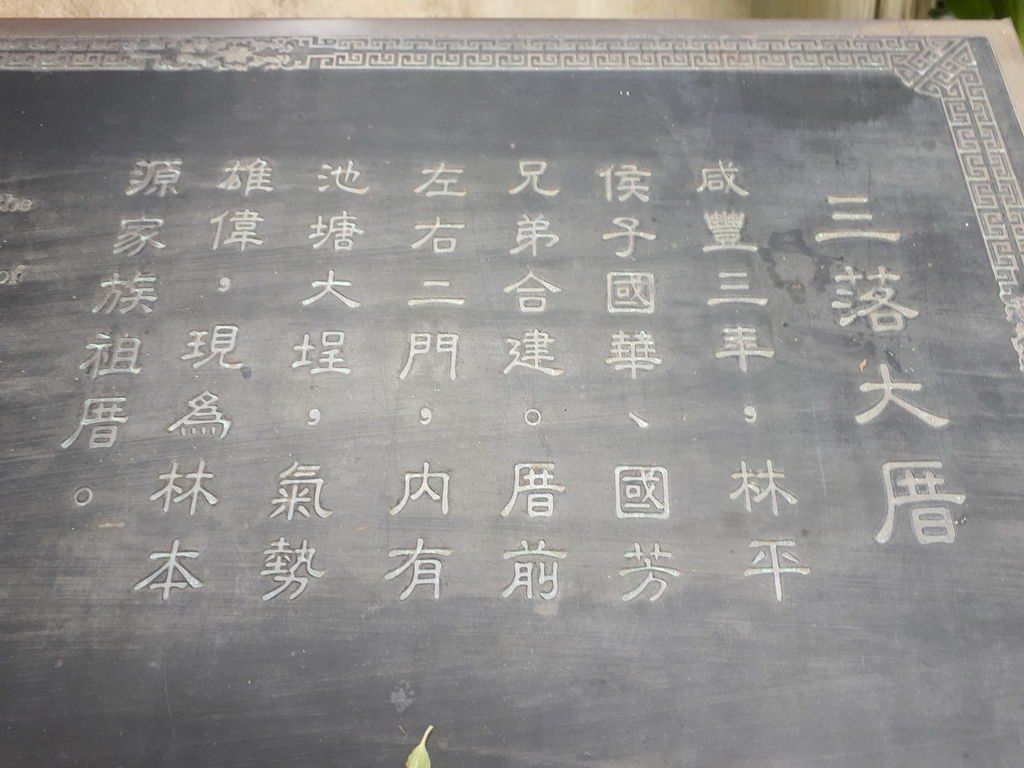 三落大厝
咸豐三年，林平
侯子國華、國芳
兄弟合建。厝前
左右二門，內有
池塘大埕，氣勢
雄偉，現為林本
源家族祖厝。
the
of